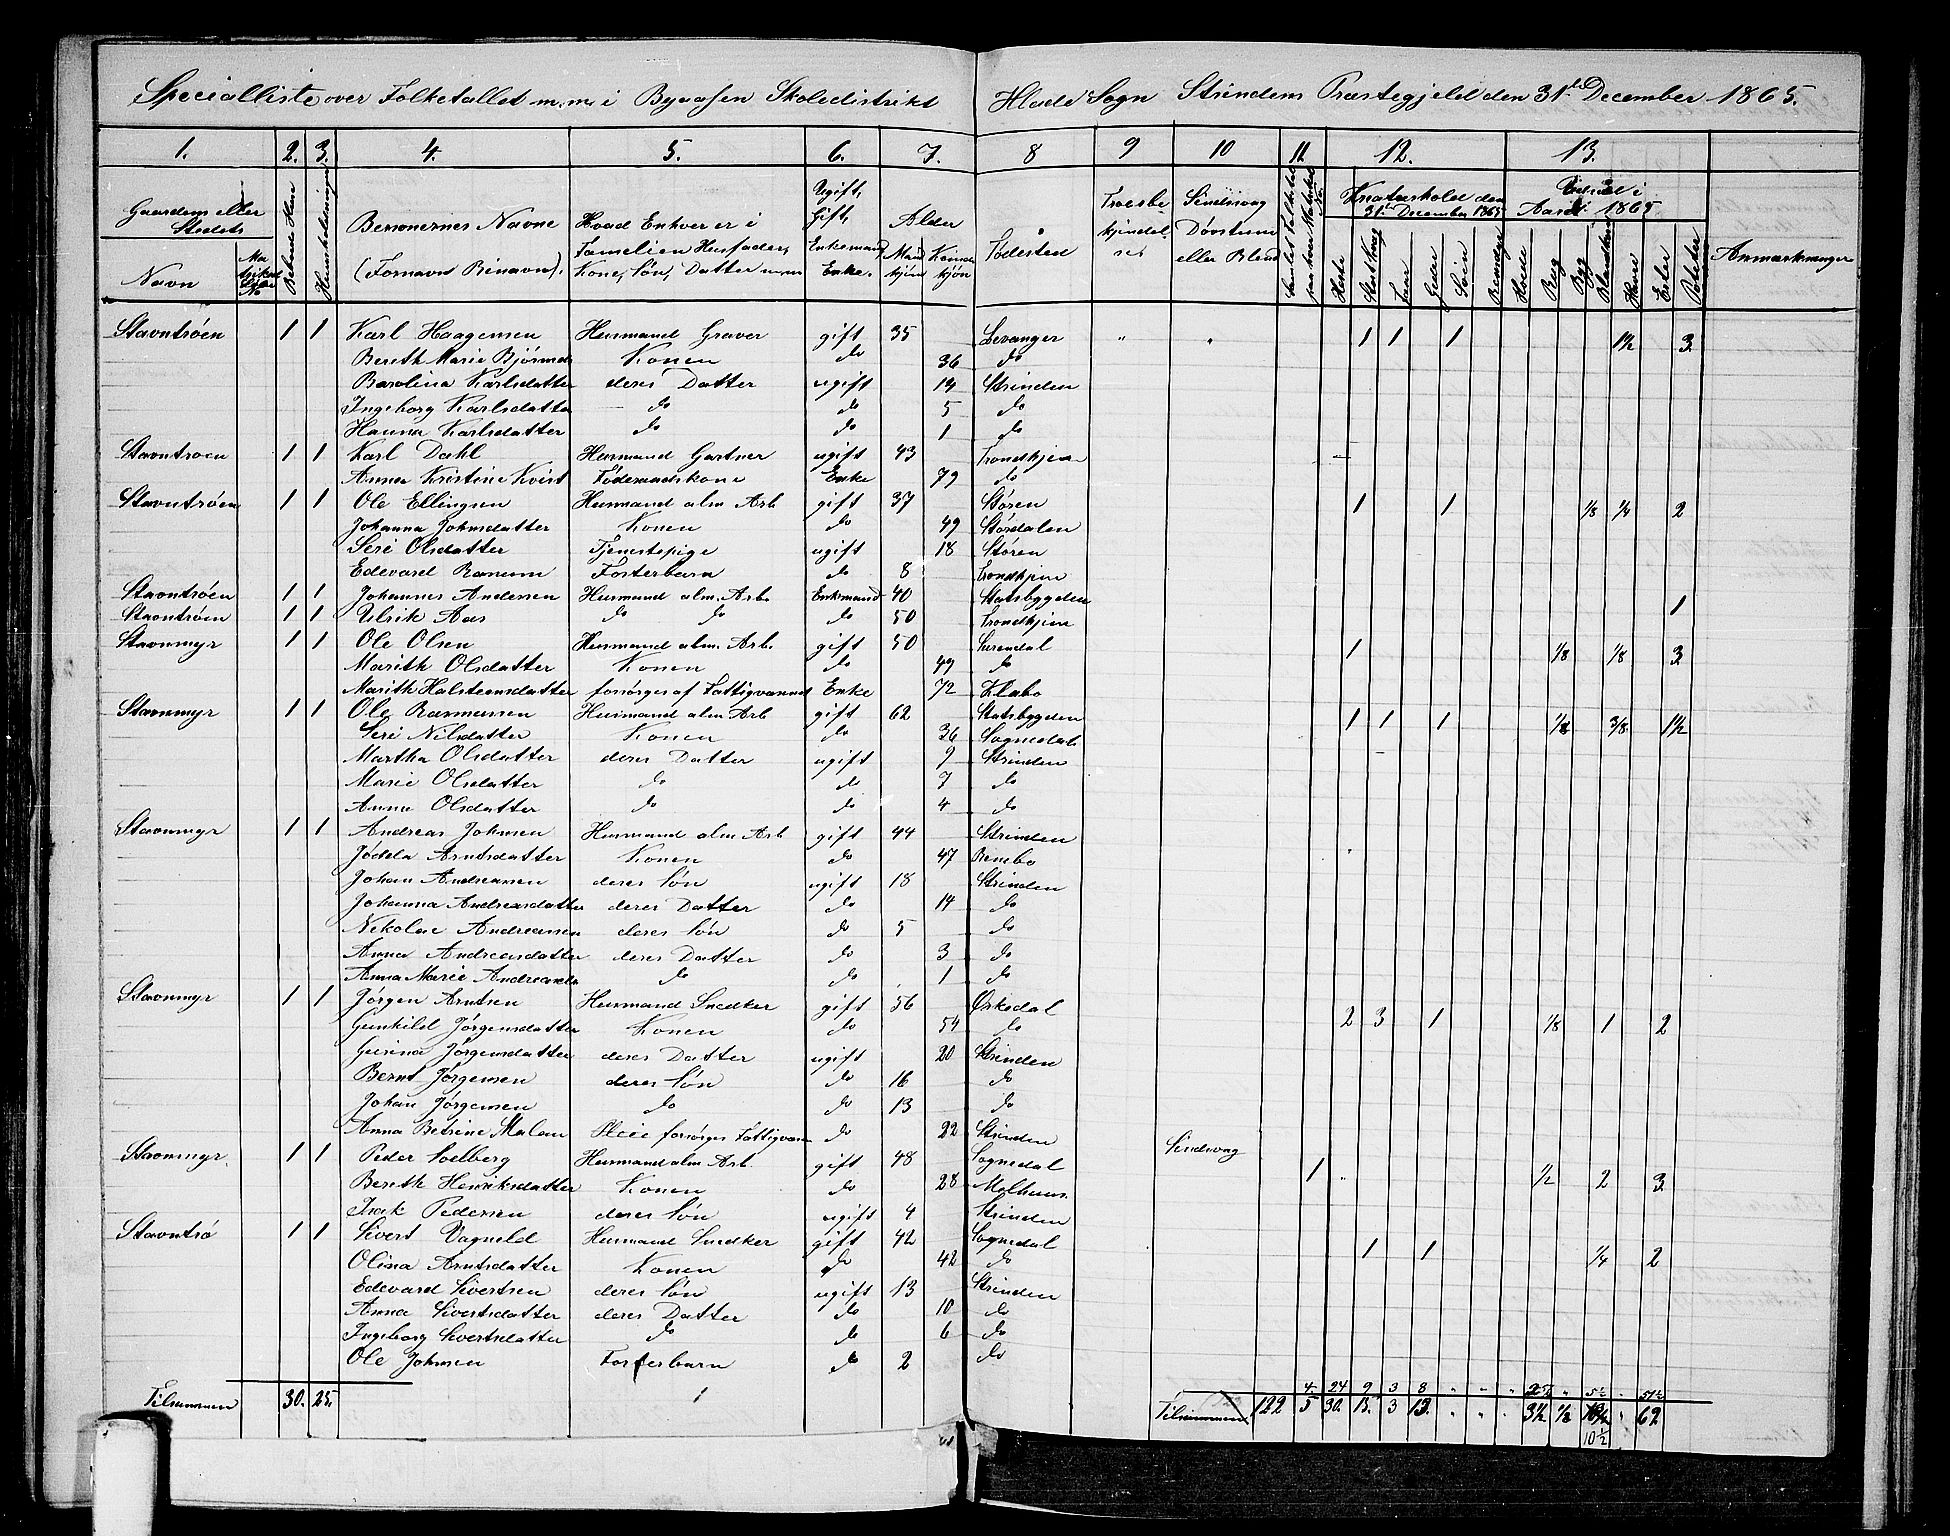 Specialliste over Folketallet m.m. i Byaasen Skoledistrikt Hlade Sogn Strindens Præstegjeld den 31te December 1865.
1. 2. 3. 4. 5. 6. 7. 8 9 10 11 12. 13.
Gaardens eller Stedets Navn Matrikul Løbe No Bebode Huse Husholdninger Personernes Navne (Fornavn Binavn). Hvad Enhver er i Familien Husfader, Kone, Søn, Datter m.m. Ugift, Gift, Enkemand, Enke. Alder Mandkjøn Kvindekjøn Fødested Troesbekjendelse Sindssvag Døvstum eller Blind Kreaturhold den 31te December 1865 Heste Stort Kvæg Faar Geder Sviin Rensdyr Udsæd i Aaret 1865 Hvede Rug Byg Blandkorn Havre Erter Poteter Anmærkninger
Stavntrøen 1 1 Karl Haagensen Husmand Graver gift 35 Levanger " " 1 1 1 1½ 3
Berith Marie Bjørnsd Konen do 36 do
Barolina Karlsdatter deres Datter ugift 14 Strinden
Ingeborg Karlsdatter do do 5 do
Hanna Karlsdatter do do 1 do
Stavntroen 1 1 Karl Dahl Husmand Gartner ugift 43 Trondhjem
Anna Kristine Kvist Føderaadskone Enke 79 do
Stavntrøen 1 1 Ole Ellingsen Husmand alm Arb gift 37 Støren 1 1 ⅛ ¼ 2
Johanna Johnsdatter Konen do 49 Størdalen
Seri Olsdatter Tjenestepige ugift 18 Støren
Edevard Ranum Fosterbarn do 8 Trondhjem
Stavntrøen 1 1 Johannes Andersen Husmand alm. Arb. Enkmand 40 Statsbygden
Stavntrøen 1 1 Ulrik Aas do do do 50 Trondhjem 1
Stavnmyr 1 1 Ole Olsen Husmand alm. Arb. gift 50 Surendal 1 ⅛ ⅛ 3
Marith Olsdatter Konen do 49 do
Marith Halstensdatter forsørges af Fattigvæsnet Enke 72 Klæbo
Stavnmyr 1 1 Ole Rasmussen Husmand alm Arb gift 62 Statsbygden 1 1 1 ⅛ ⅜ 1½
Seri Nilsdatter Konen do 36 Sognedal
Martha Olsdatter deres Datter ugift 9 Strinden
Marie Olsdatter do do 7 do
Anne Olsdatter do do 4 do
Stavnmyr 1 1 Andreas Johnsen Husmand alm Arb gift 44 Strinden
Jødda Arntsdatter Konen do 47 Rensbo
Johan Andreasen deres Søn ugift 18 Strinden
Johanna Andreasdatter deres Datter do 14 do
Nikolai Andreasen deres Søn do 5 do
Anna Andreasdatter deres Datter do 3 do
Anna Marie Andreasda do do 1 do
Stavnmyr 1 1 Jørgen Arntsen Husmand Snedker gift 56 Ørkedal 2 3 1 ⅛ 1 2
Gunhild Jørgensdatter Konen do 54 do
Gurina Jørgensdatter deres Datter ugift 20 Strinden
Bernt Jørgensen deres Søn do 16 do
Johan Jørgensen do do 13 do
Anna Betrine Malan Pleie forsørges Fattigvæsn do 22 Strinden
Stavnmyr 1 1 Peder Solberg Husmand alm Arb. gift 48 Sognedal Sindssvag 1 ½ 2 3
Berith Henriksdatter Konen do 28 Melhuus
Isak Pedersen deres Søn ugift 4 Strinden
Stavntrø 1 1 Sivert Vagnild Husmand Snedker gift 42 Sognedal 1 1 ¼ 2
Olina Arntsdatter Konen do 42 do
Edevard Sivertsen deres Søn ugift 13 Strinden
Anna Sivertsdatter deres Datter do 10 do
Ingeborg Sivertsdatter do do 6 do
Ole Johnsen Fosterbarn do 2 do
4 24 9 3 8 " " " " 5½ 51½
Tilsammen 30. 25. Tilsammen 122 5 30. 15. 3 13. " " " 3½ ½ 62
10½